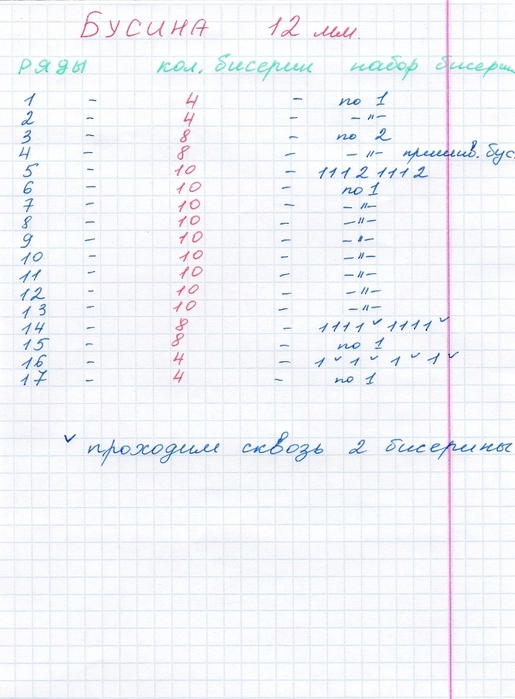 БУСИНА 12 мм.
РЯДЫ кол. бисерин набор бисерин
1 - 4 - по 1
2 - 4 - -"-
3 - 8 - по 2
4 - 8 - -"- пришив. бус.
5 - 10 - 1 1 1 2 1 1 1 2
6 - 10 - по 1
7 - 10 - -"-
8 - 10 - -"-
9 - 10 - -"-
10 - 10 - -"-
11 - 10 - -"-
12 - 10 - -"-
13 - 10 - -"-
14 - 8 - 1 1 1 1 ˅ 1 1 1 1 ˅
15 - 8 - по 1
16 - 4 - 1 ˅ 1 ˅ 1 ˅ 1 ˅
17 - 4 - по 1
˅ проходим сквозь 2 бисерины